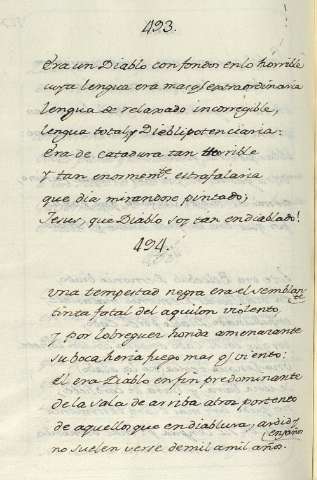 493.
Era un Diablo con fondos en lo horrible
cuya lengua era mas q̃ extraordinaria
lengua de relaxado incorregible,
lengua total, y Diablipotenciaria:
Era de catadura tan horrible
y tan enormem.te estrafalaria
que dia mirandose pintado;
Jesus, que Diablo soy tan endiablado!
494.
Una tempestad negra era el semblante
tinta fatal del aquilon violento,
y por lobreguez honda amenazante
su boca heria fuego mas q̃ viento:
El era Diablo en fin predominante
de la sala de arriba atroz portento
de aquellos que en diablura, ardid, y
engaños
no suelen verse de mil a mil años.